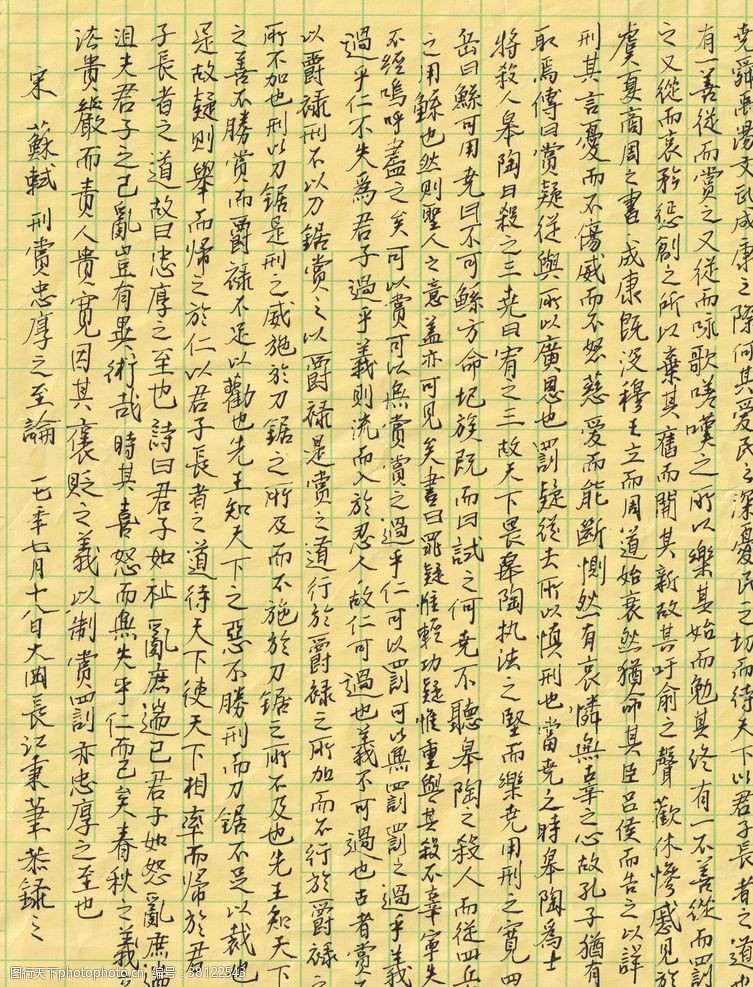 堯舜禹湯文武成康之際何其愛民之深憂民之切而待天下以君子長者之道也
有一善從而賞之又從而咏歌嗟嘆之所以樂其始而勉其終有一不善從而罰
之又從而哀矜懲創之所以棄其舊而開其新故其吁俞之聲歡休慘慼見於
虞夏商周之書成康既没穆王立而周道始衰然猶命其臣吕侯而告之以詳
刑其言憂而不傷威而不怒慈愛而能斷惻然有哀憐無辜之心故孔子猶有
取焉傳曰賞疑從與所以廣恩也罰疑從去所以慎刑也當堯之時皋陶為士
將殺人皋陶曰殺之三堯曰宥之三故天下畏皋陶执法之堅而樂堯用刑之寬四
岳曰鯀可用堯曰不可鯀方命圮族既而曰試之何堯不聽皋陶之殺人而從四岳
之用鯀也然則聖人之意盖亦可見矣書曰罪疑惟輕功疑惟重與其殺不辜寧失
不經嗚呼盡之矣可以賞可以無賞賞之過乎仁可以罰可以無罰罰之過乎義
過乎仁不失為君子過乎義則流而入於忍人故仁可過也義不可過也古者賞不
以爵禄刑不以刀鋸賞之以爵禄是賞之道行於爵禄之所加而不行於爵禄之
所不加也刑以刀鋸是刑之威施於刀鋸之所及而不施於刀鋸之所不及也先王知天下
之善不勝賞而爵禄不足以勸也先王知天下之惡不勝刑而刀鋸不足以裁也
是故疑則舉而歸之於仁以君子長者之道待天下使天下相率而歸於君
子長者之道故曰忠厚之至也詩曰君子如祉亂庶遄已君子如怒亂庶遄
沮夫君子之已亂豈有異術哉時其喜怒而無失乎仁而已矣春秋之義立
法貴嚴而責人貴寬因其褒貶之義以制賞罰亦忠厚之至也
宋 蘇軾 刑賞忠厚之至論 一七年七月十八日大岡長江秉筆恭録之
图行天下photophoto.cn 编号：38122543